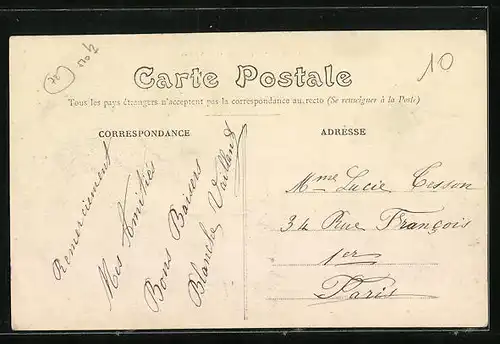 10
Carte Postale
Tous les pays étrangers n'acceptent pas la correspondance au recto (Se renseigner à la Poste)
CORRESPONDANCE
Remerciement
Mes Amitiés
Bons Baisers
Blanche Vaillant
ADRESSE
Mme Lucie Tesson
34 Rue François
1er
Paris